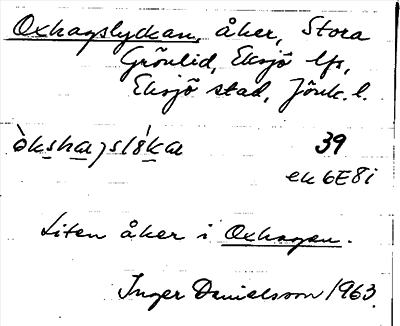 Oxhagslyckan, åker, Stora
Grönlid, Eksjö lfs,
Eksjö stad, Jönk. l.
39
ek 6E8i
Liten åker i Oxhagen.
Inger Danielsson 1963.